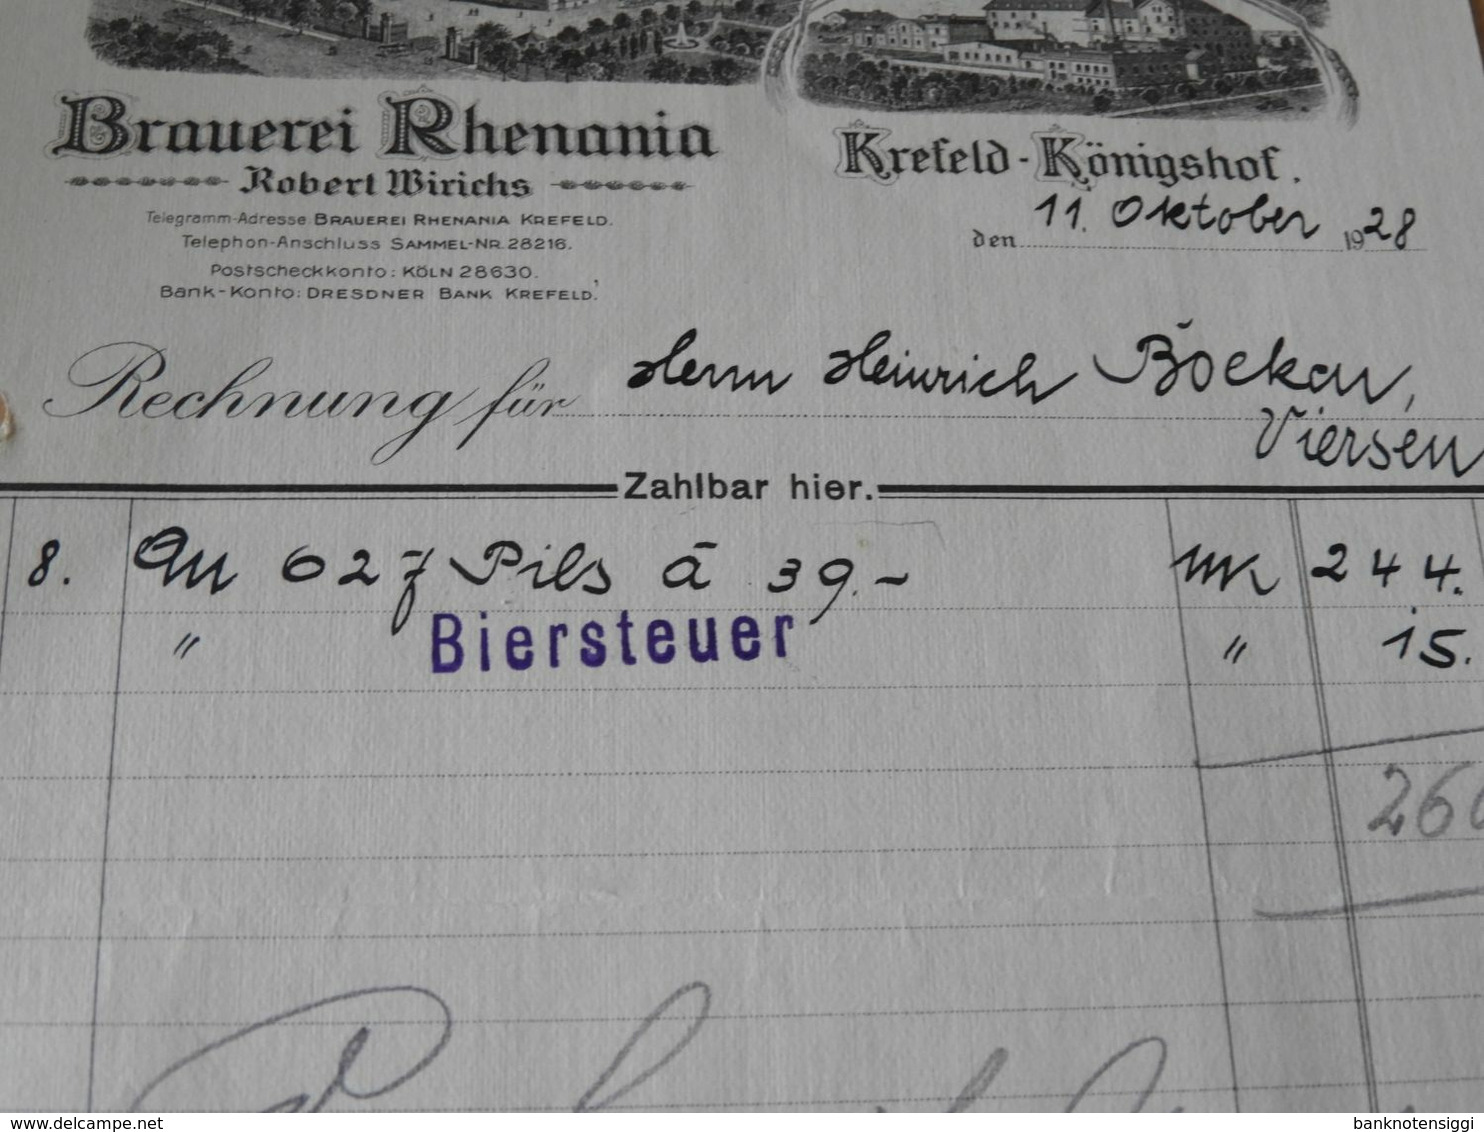 Brauerei Rhenania
Robert Wirichs
Telegramm-Adresse BRAUEREI RHENANIA KREFELD.
Telephon-Anschluss SAMMEL-NR. 28216.
Postscheckkonto: KÖLN 28630.
Bank-Konto: DRESDNER BANK KREFELD.
Krefeld-Königshof.
den 11. Oktober 1928
Rechnung für Herrn Heinrich
Viersen
Zahlbar hier.
8. An 627 Pils à 39.- Mk 244.
" Biersteuer " 15.
26
delcampe.net
banknotensiggi